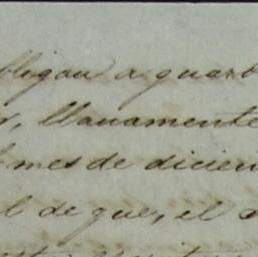 bligan a guard
, llanamente
mes de diciem
l de que, el